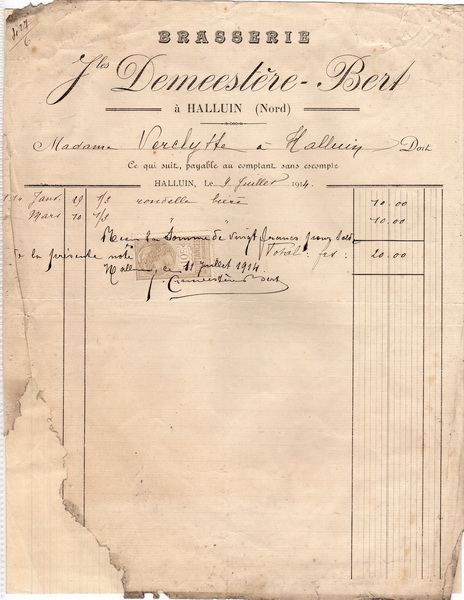 BRASSERIE
Jles Demeestère-Bert
à HALLUIN (Nord)
Madame Verclytte à Halluin Doit
Ce qui suit, payable au comptant sans escompte
HALLUIN, le 9 Juillet 1914.
1914 Janv. 29 1/3 rondelle bière 10.00
" Mars 10 1/3 " " 10.00
Reçu la somme de vingt francs pour solde
de la présente note Total: frs: 20.00
Halluin, ce 11 Juillet 1914.
Demeestère Bert